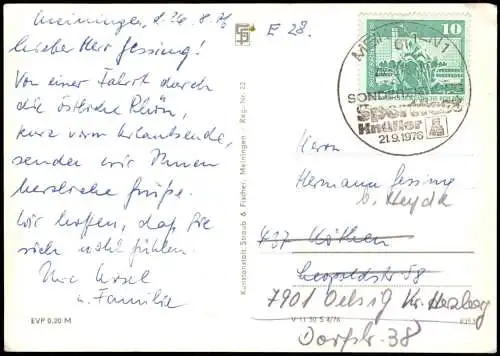 Meiningen, d. 26.8.76
Lieber Herr Jessing!
Von einer Fahrt durch
die östliche Rhön,
kurz vorm Urlaubsende,
senden wir Ihnen
herzliche Grüße.
Wir hoffen, daß Sie
sich wohl fühlen.
Ihre
u. Familie
EVP 0,20 M
Kunstanstalt Straub & Fischer, Meiningen · Reg.-Nr. 22
V 11 50 S 4/76
E 28.
10
21.9.1976
Herrn
Hermann Jessing
b. Heyda
437 Köthen
Leopoldstr. 58
7901 Oelsig Kr. Herzberg
Dorfstr. 38